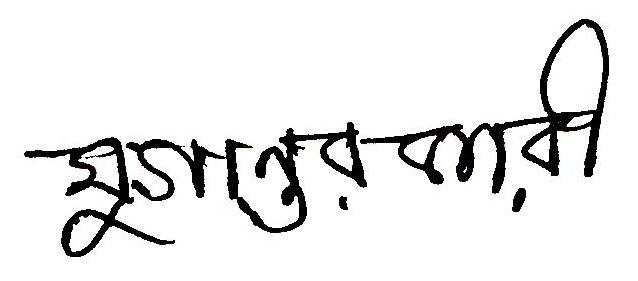 যুগান্তর কারী